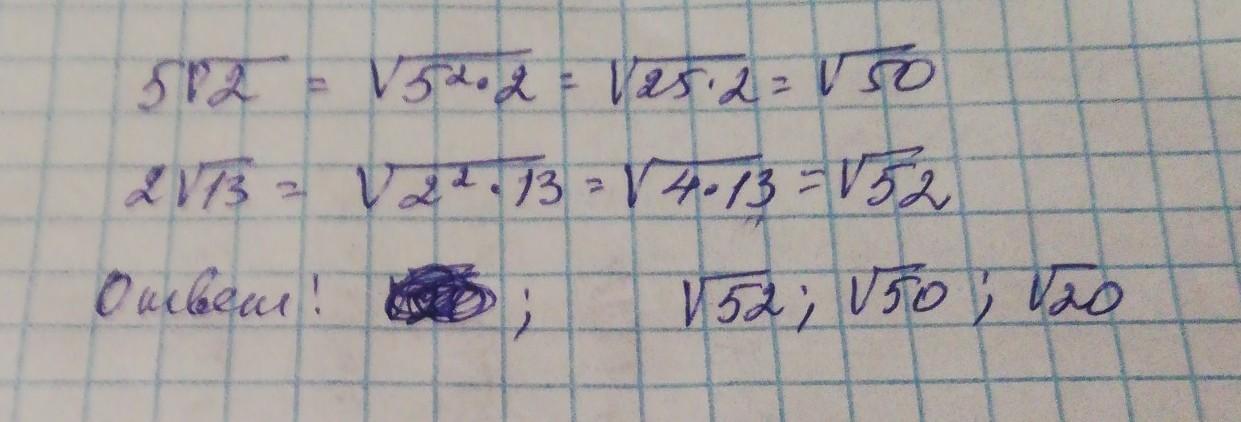 5√2 = √5²·2 = √25·2 = √50
2√13 = √2²·13 = √4·13 = √52
Ответ: ; √52; √50; √20